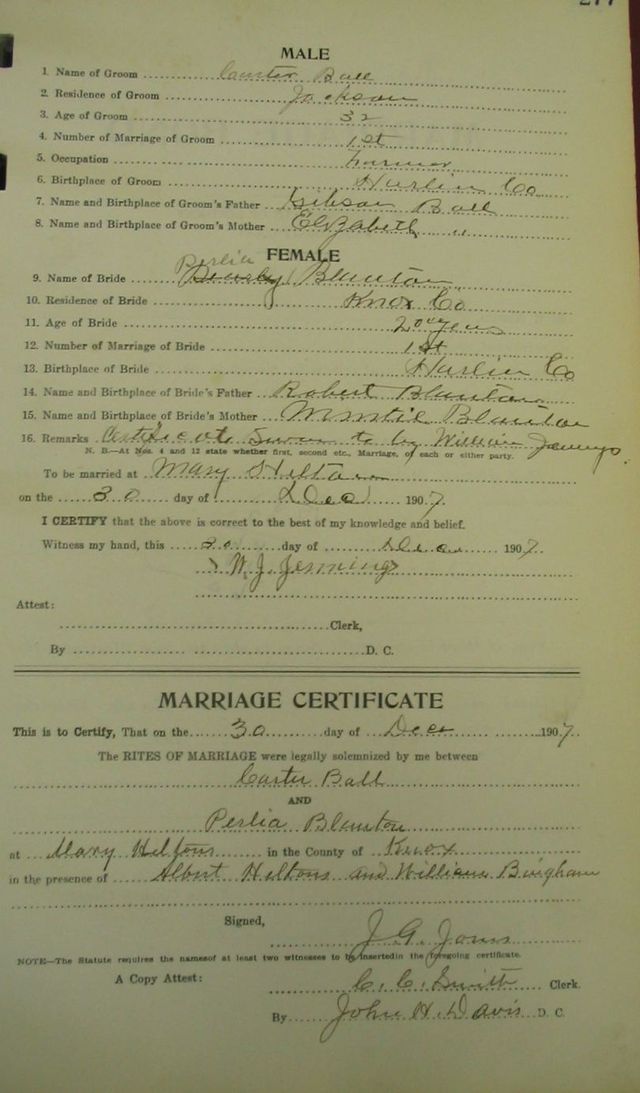 277
MALE
1. Name of Groom Carter Ball
2. Residence of Groom Jackson
3. Age of Groom 32
4. Number of Marriage of Groom 1st
5. Occupation Farmer
6. Birthplace of Groom Harlin Co
7. Name and Birthplace of Groom's Father Gibson Ball
8. Name and Birthplace of Groom's Mother Elizabeth "
FEMALE
Perlia
9. Name of Bride Blanton
10. Residence of Bride Knox Co
11. Age of Bride 20 years
12. Number of Marriage of Bride 1st
13. Birthplace of Bride Harlin Co
14. Name and Birthplace of Bride's Father Robert Blanton
15. Name and Birthplace of Bride's Mother Blanton
16. Remarks Certificate Sworn to by William Jennings
N. B.—At Nos. 4 and 12 state whether first, second etc., Marriage, of each or either party.
To be married at Mary Hiltons
on the 30 day of Dec 1907
I CERTIFY that the above is correct to the best of my knowledge and belief.
Witness my hand, this 30 day of Dec 1907.
W. J. Jennings
Attest:
Clerk,
By D. C.
MARRIAGE CERTIFICATE
This is to Certify, That on the 30 day of Dec 1907.
The RITES OF MARRIAGE were legally solemnized by me between
Carter Ball
AND
Perlia Blanton
at Mary Hiltons in the County of Knox
in the presence of Albert Hiltons and William Bingham
Signed,
J. G. Jones
NOTE—The Statute requires the namesof at least two witnesses to be insertedin the foregoing certificate.
A Copy Attest: C. C. Smith Clerk.
By John H. Davis D. C.